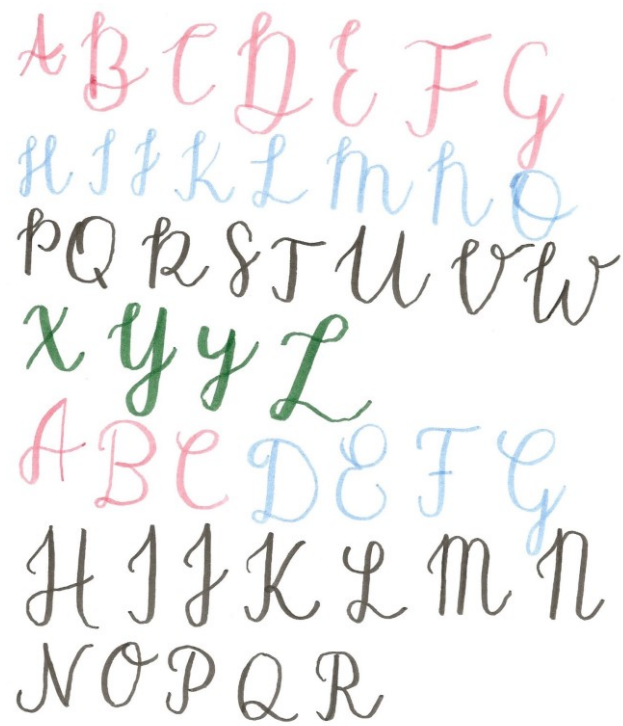 A B C D E F G
H I J K L M N O
P Q R S T U V W
X Y y L
A B C D E F G
H I J K L M N
N O P Q R